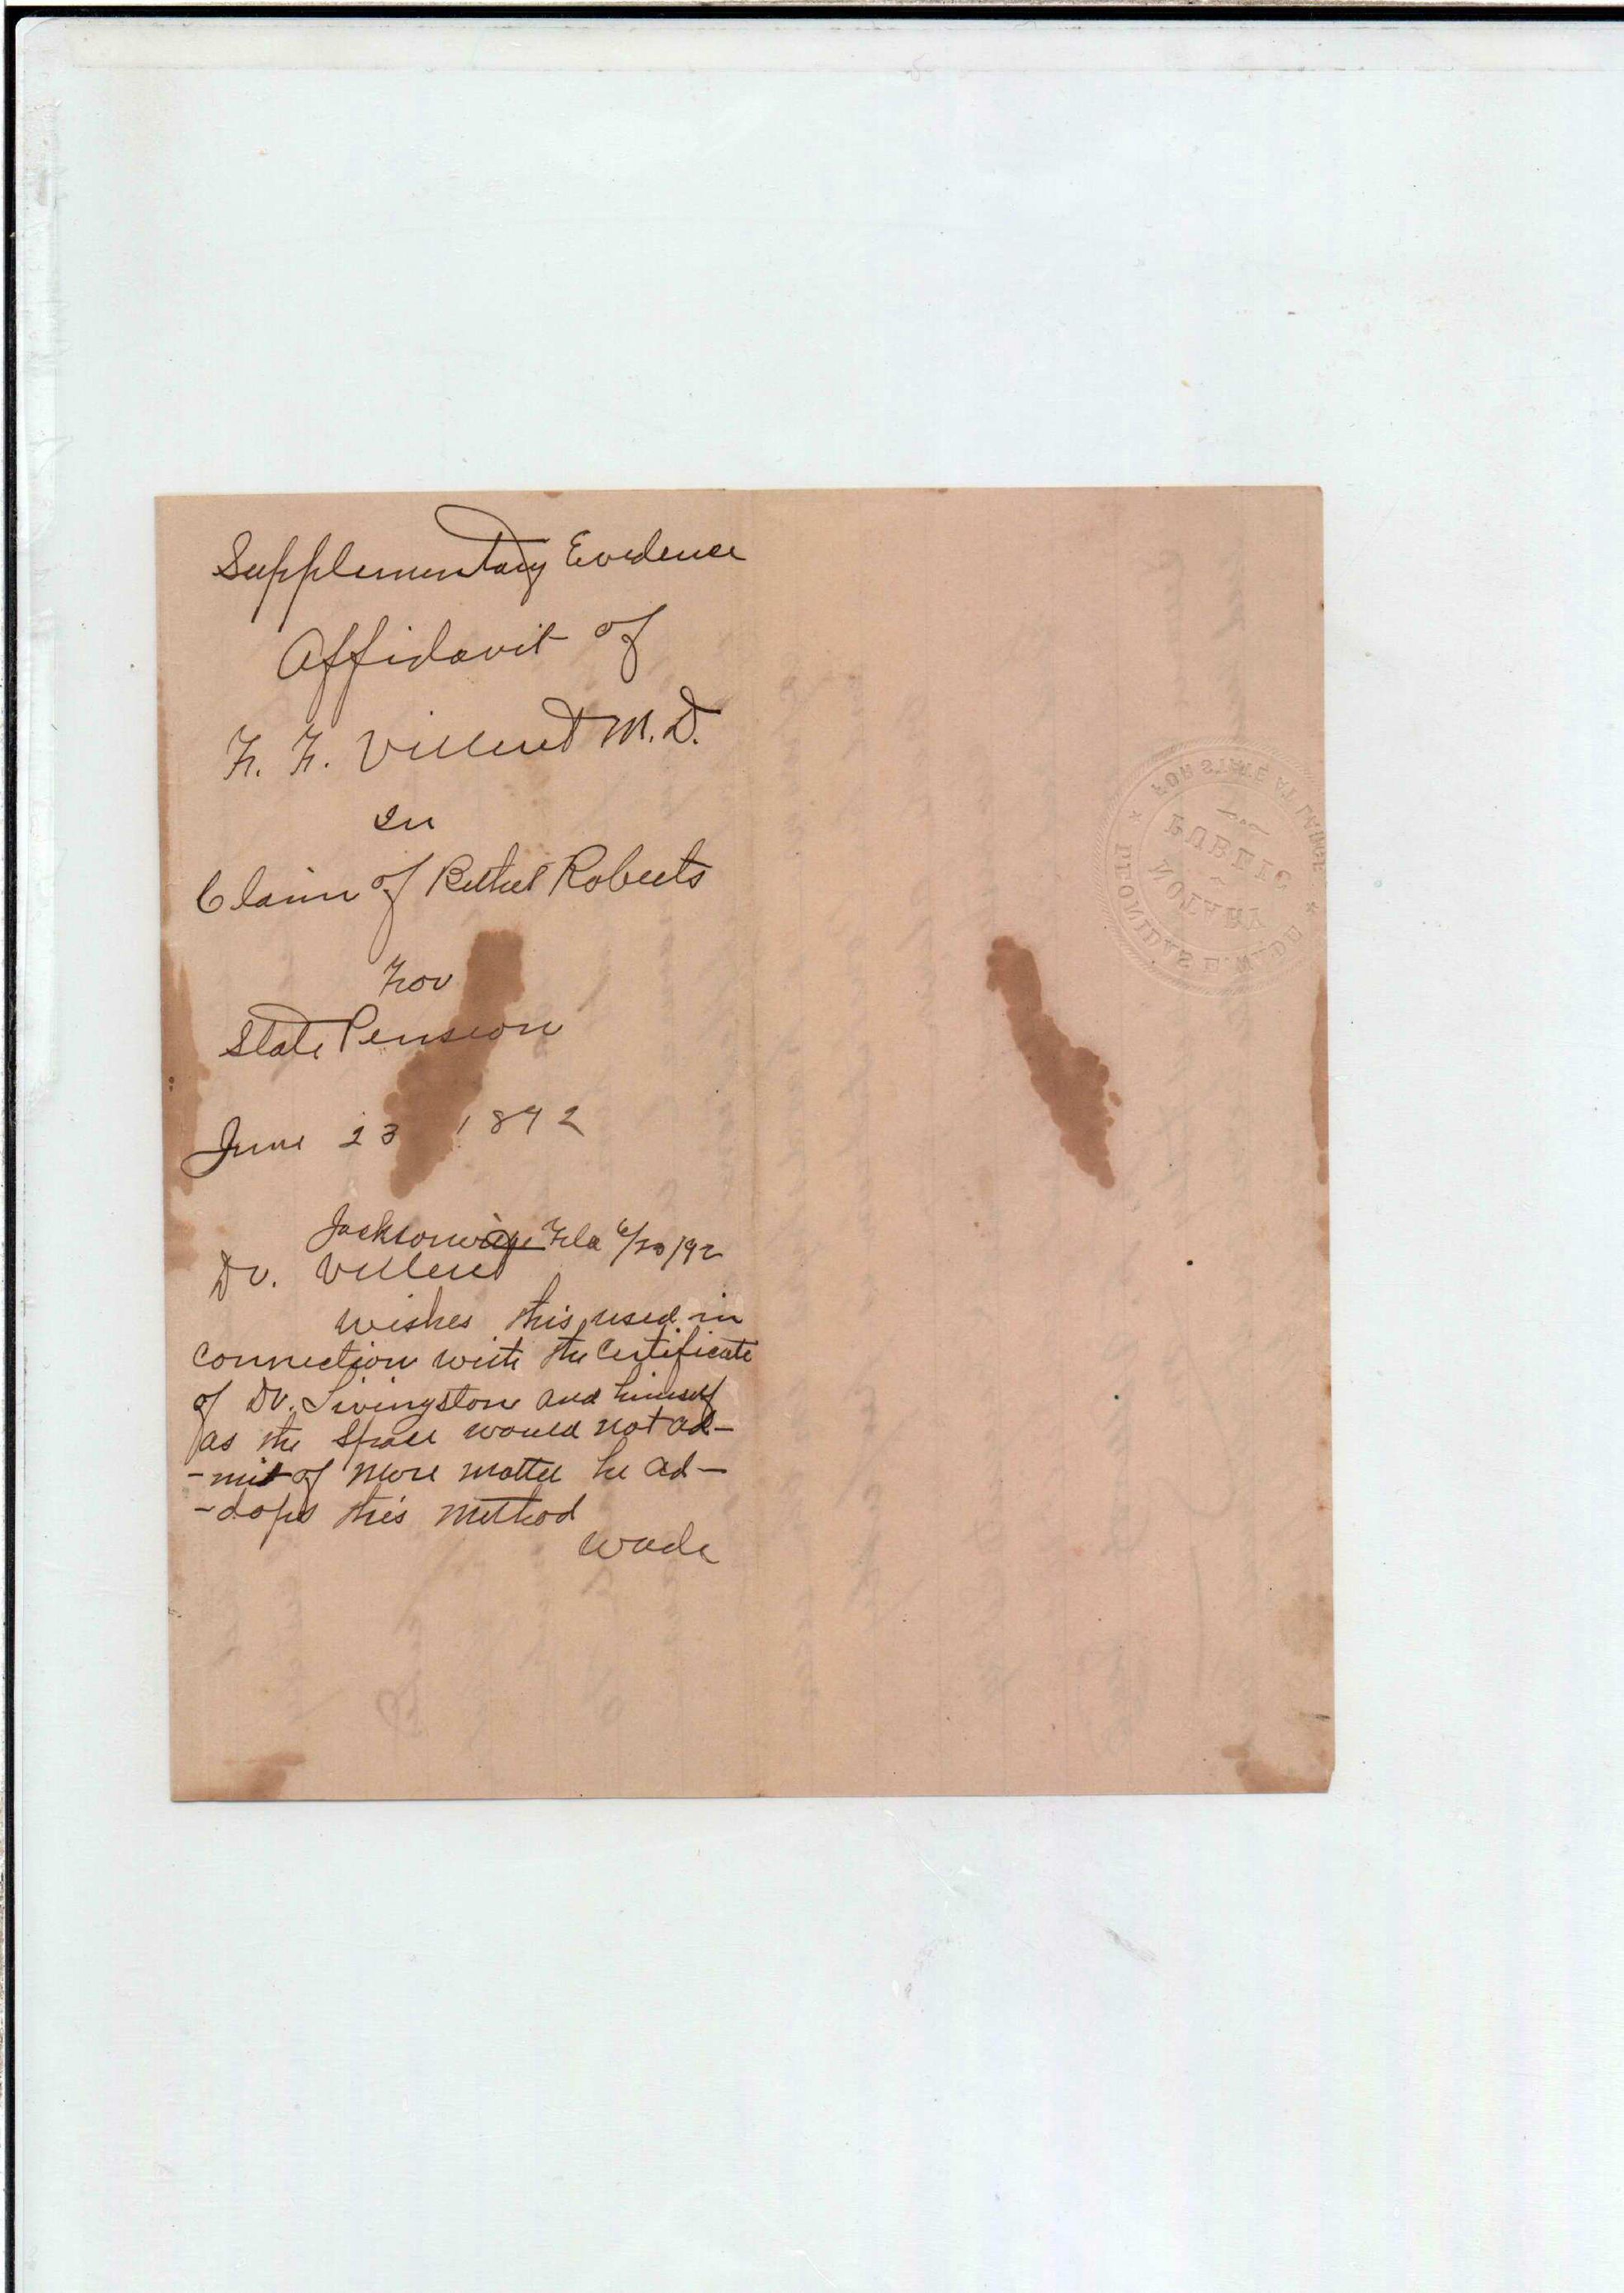 Supplementary Evidence
Affidavit of
F. F. Villert M.D.
In
Claim of Bethel Roberts
For
State Pension
June 23 1892
Jacksonville Fla 6/23/92
Dr. Villert
wishes this used in
connection with the Certificate
of Dr. Livingston and himself
as the space would not ad-
-mit of more matter he ad-
-dopts this method
Wade
NOTARY
PUBLIC
FOR STATE AT LARGE